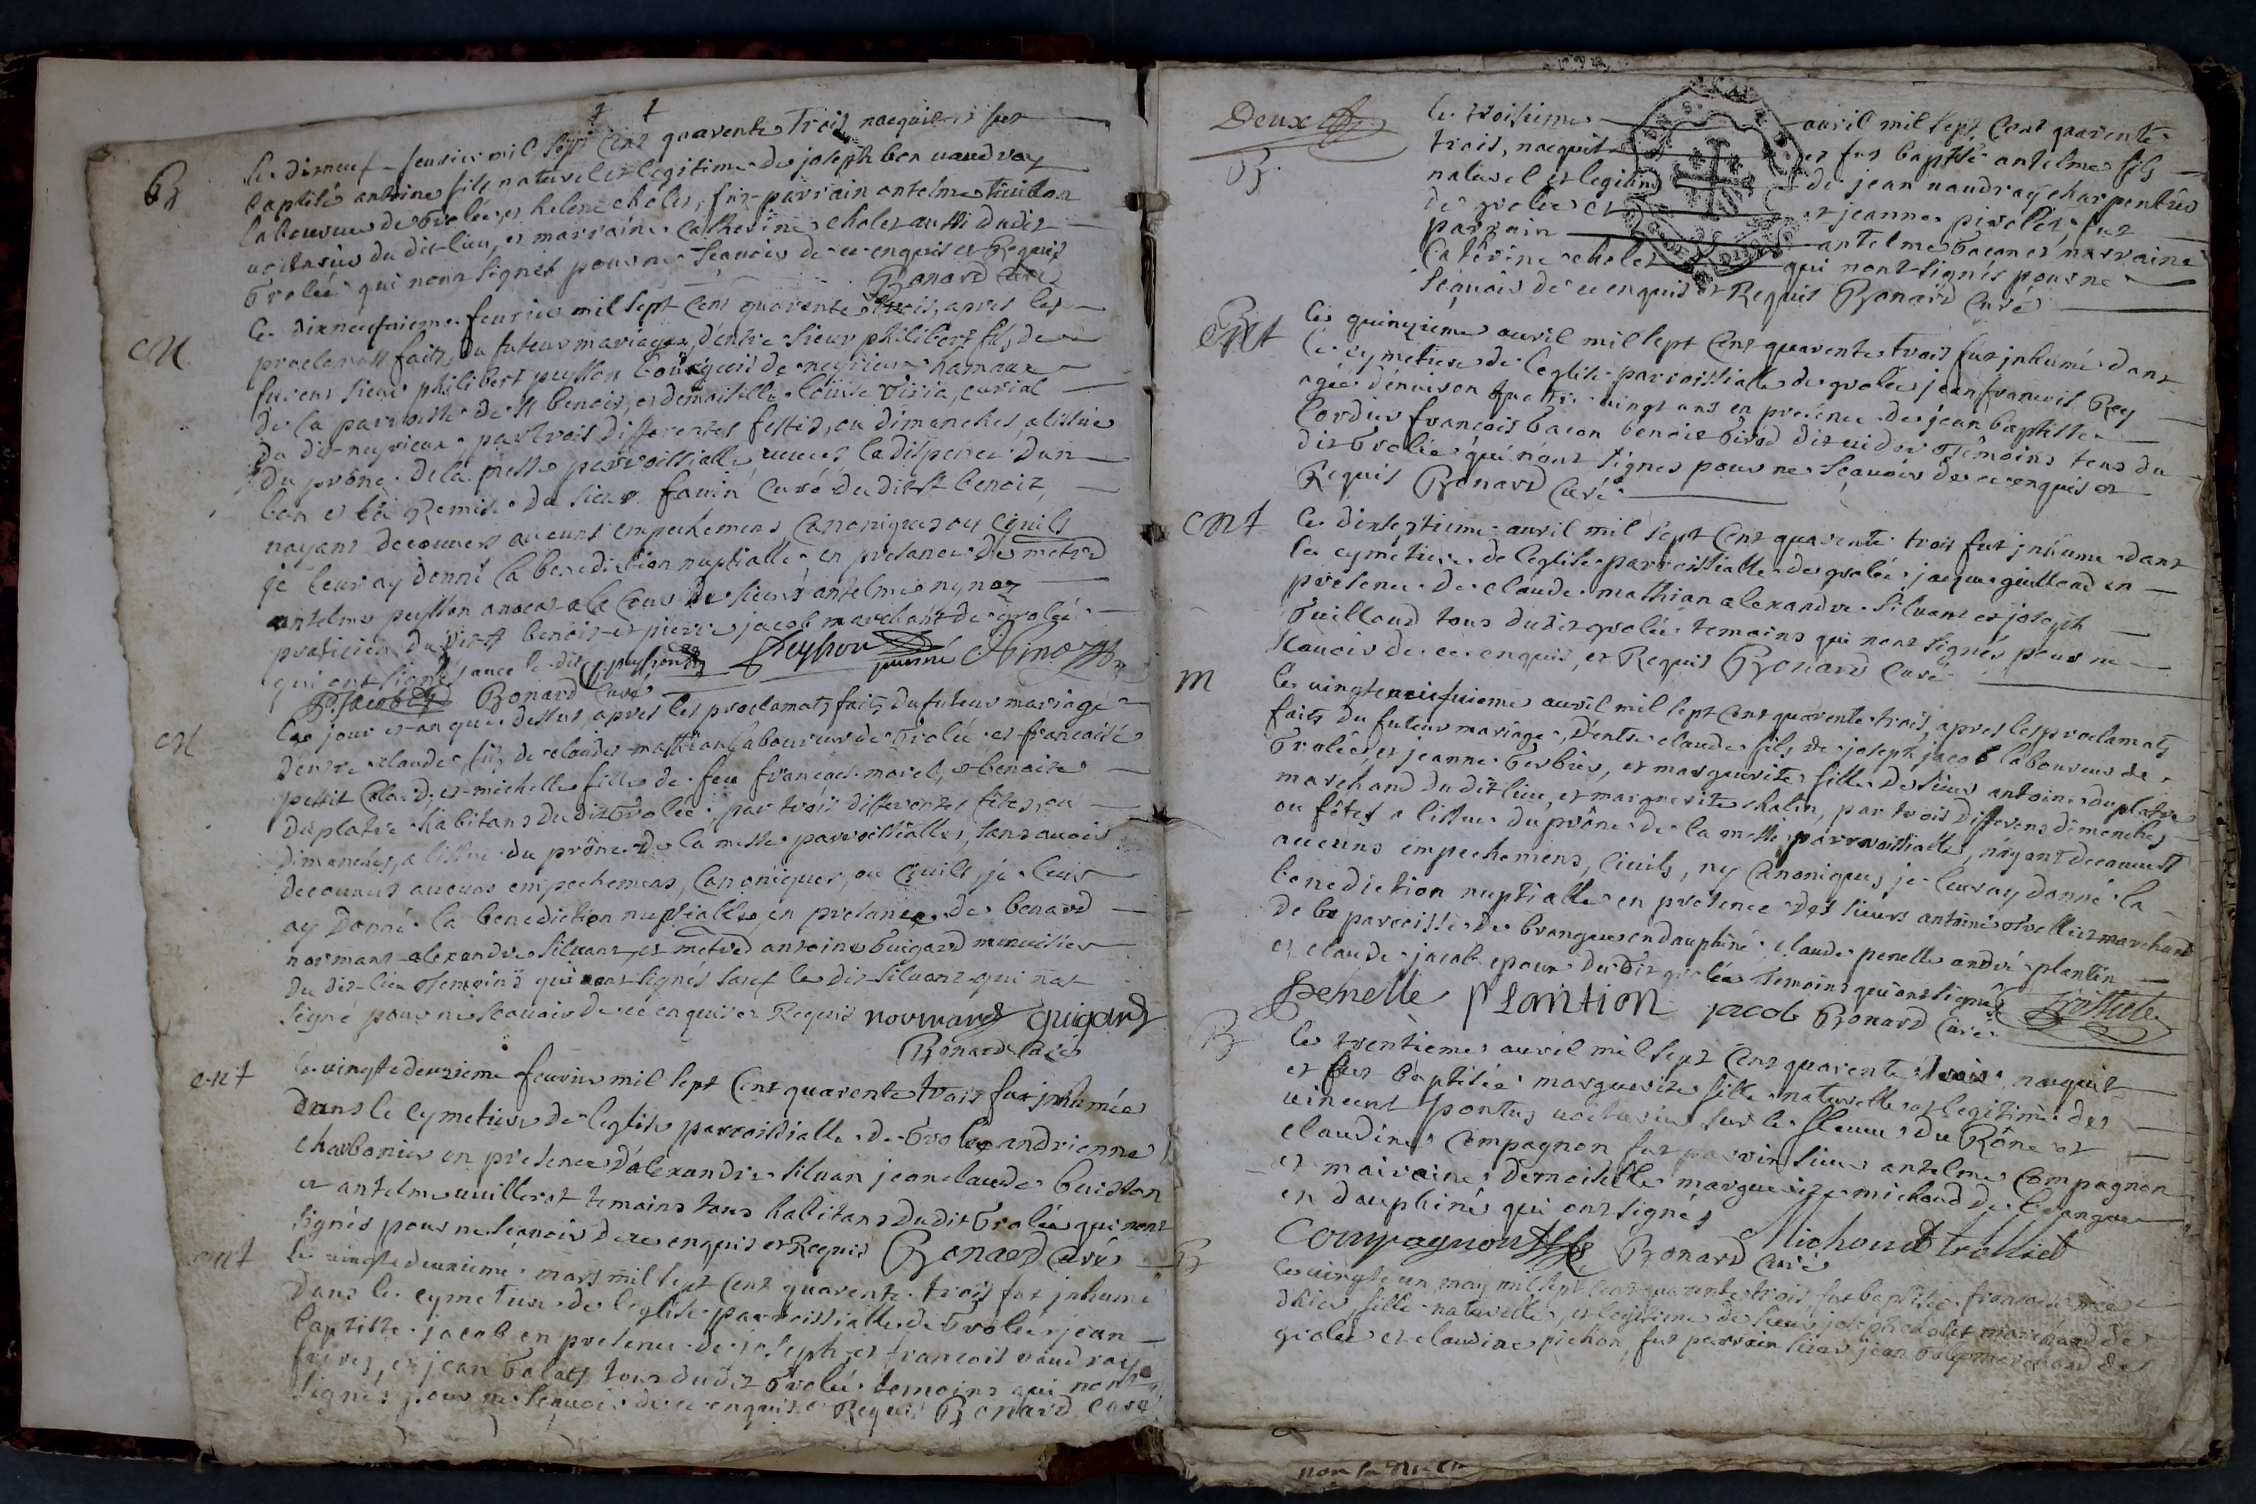 B
Le dixneuf feurier mil sept cent quarente trois nacquit et fut
baptisé antoine fils naturel et legitime de joseph ben vaudray
laboureur de Grolée et helene cholet, fut parrain antelme
voiturier du dit lieu, et marraine Catherine cholet aussi dudit
Grolée qui nont signés pour ne sçauoir de ce enquis et Requis
Bonard Curé
M
Le dixneufuieme feurier mil sept cent quarente trois, apres les
proclamats faits du futeur mariage, dentre sieur philibert fils de
sieur philibert peysson bourgeois de
de la parroisse de St benoit, et demoiselle Louise curial
du dit par trois differentes festes, ou dimanches, a lissue
du prône de la messe parroissialle la dispence dun
ban et la Remise du sieur fauin Curé du dit St benoit,
nayant decouuert aucuns empechemens Canoniques ou Ciuils
je leur ay donné la benediction nuptialle en presance de
antelme peysson auocat sieur antelme nynoz
praticien du dit St benoit et pierre jacob marchant de grolée
qui ont signés auec le dit peysson Peysson
P. jacob Bonard Curé
M
Les jour et an que dessus apres les proclamats faits du futeur mariage
dentre claude fils de claude mathian laboureur de Grolée et francoise
pettit et michelle fille de feu françois morel, et benoite
duplatre habitans du dit Grolée par trois differentes fêtes, ou
dimanches, a lissue du prône de la messe parroissialle, sans auoir
decouuert aucuns empechemens, Canoniques, ou Ciuils, je leur
ay donné la benediction nuptialle, en presance de benard
normant alexandre siluant et antoine Guigard menuisier
du dit lieu temoins qui ont signés sauf le dit siluant qui nat
signé pour ne scauoir de ce enquis et Requis normand Guigard
Bonard Curé
ent
Le vingtedeuxieme feurier mil sept cent quarente trois fut inhumée
dans le cymetiere de leglise parroissialle de Grolée andrienne
charbonier en presence dalexandre siluan jean claude buisson
et antelme temoins tous habitans du dit Grolée qui nont
signés pour ne sçauoir de ce enquis et Requis Bonard Curé
ent
Le vingtedeuxieme mars mil sept cent quarente trois fut inhumé
dans le cymetiere de leglise parroissialle de Grolée jean
baptiste jacob en presence de joseph, et francois vaudray
freres, et jean tous du dit Grolée temoins qui nont
signés pour ne sçauoir de ce enquis et Requis Bonard Curé
Deux
B
Le troisieme auril mil sept cent quarente
trois, nacquit et fut baptisé antelme fils
naturel et legitime de jean vaudray charpentier
de grolée et et jeanne fut
parrain antelme bacon et marraine
Caterine cholet qui nont signés pour ne
sçauoir de ce enquis et Requis Bonard Curé
Ent
Le quinzieme auril mil sept cent quarente trois fut inhumé dans
le cymetiere de leglise parroissialle de grolée jean francois Rey
agée denuiron quatre vingt ans en presence de jean baptiste
Cordier francois bacon benoit dit temoins tous du
dit Grolée qui nont signés pour ne sçauoir de ce enquis et
Requis Bonard Curé
Ent
Le dixseptieme auril mil sept cent quarente trois fut inhumé dans
le cymetiere de leglise parroissialle de grolée jacque guilloud en
presence de claude mathian alexandre siluant et joseph
Guilloud tous du dit grolée temoins qui nont signés pour ne
scauoir de ce enquis, et Requis Bonard Curé
M
Le auril mil sept cent quarente trois, apres les proclamats
faits du futeur mariage, dentre claude fils de joseph jacob laboureur de
Grolée, et jeanne et marguerite fille de sieur antoine duplatre
marchand du dit lieu, et marguerite chatin, par trois differens dimenches
ou fêtes a lissue du prône de la messe parroissialle, nayant decouuert
aucuns empechemens, Ciuils, ny Canoniques je leur ay donné la
benediction nuptialle en presence des sieurs antoine trolliet marchand
de la paroisse de brangues en dauphiné claude penelle andré plantin
et claude jacob du dit grolée temoins qui ont signés
Penelle Plantion jacob Bonard Curé
B
Le trentieme auril mil sept cent quarente trois nacquit
et fut baptisée marguerite fille naturelle et legitime de
vincent pontus voiturier sur le fleuue du Rône et
claudine Compagnon fut parrin sieur antelme Compagnon
et mairaine demoiselle marguerite michoud de brangues
en dauphiné qui ont signés
Compagnon Bonard Curé Michoud trolliet
B
Le vingte un may mil sept cent quarente trois fut baptisée francoise née
dhier, fille naturelle, et legitime de sieur joseph cholet marchand de
grolée et claudine pichon, fut parrain sieur jean marchand de